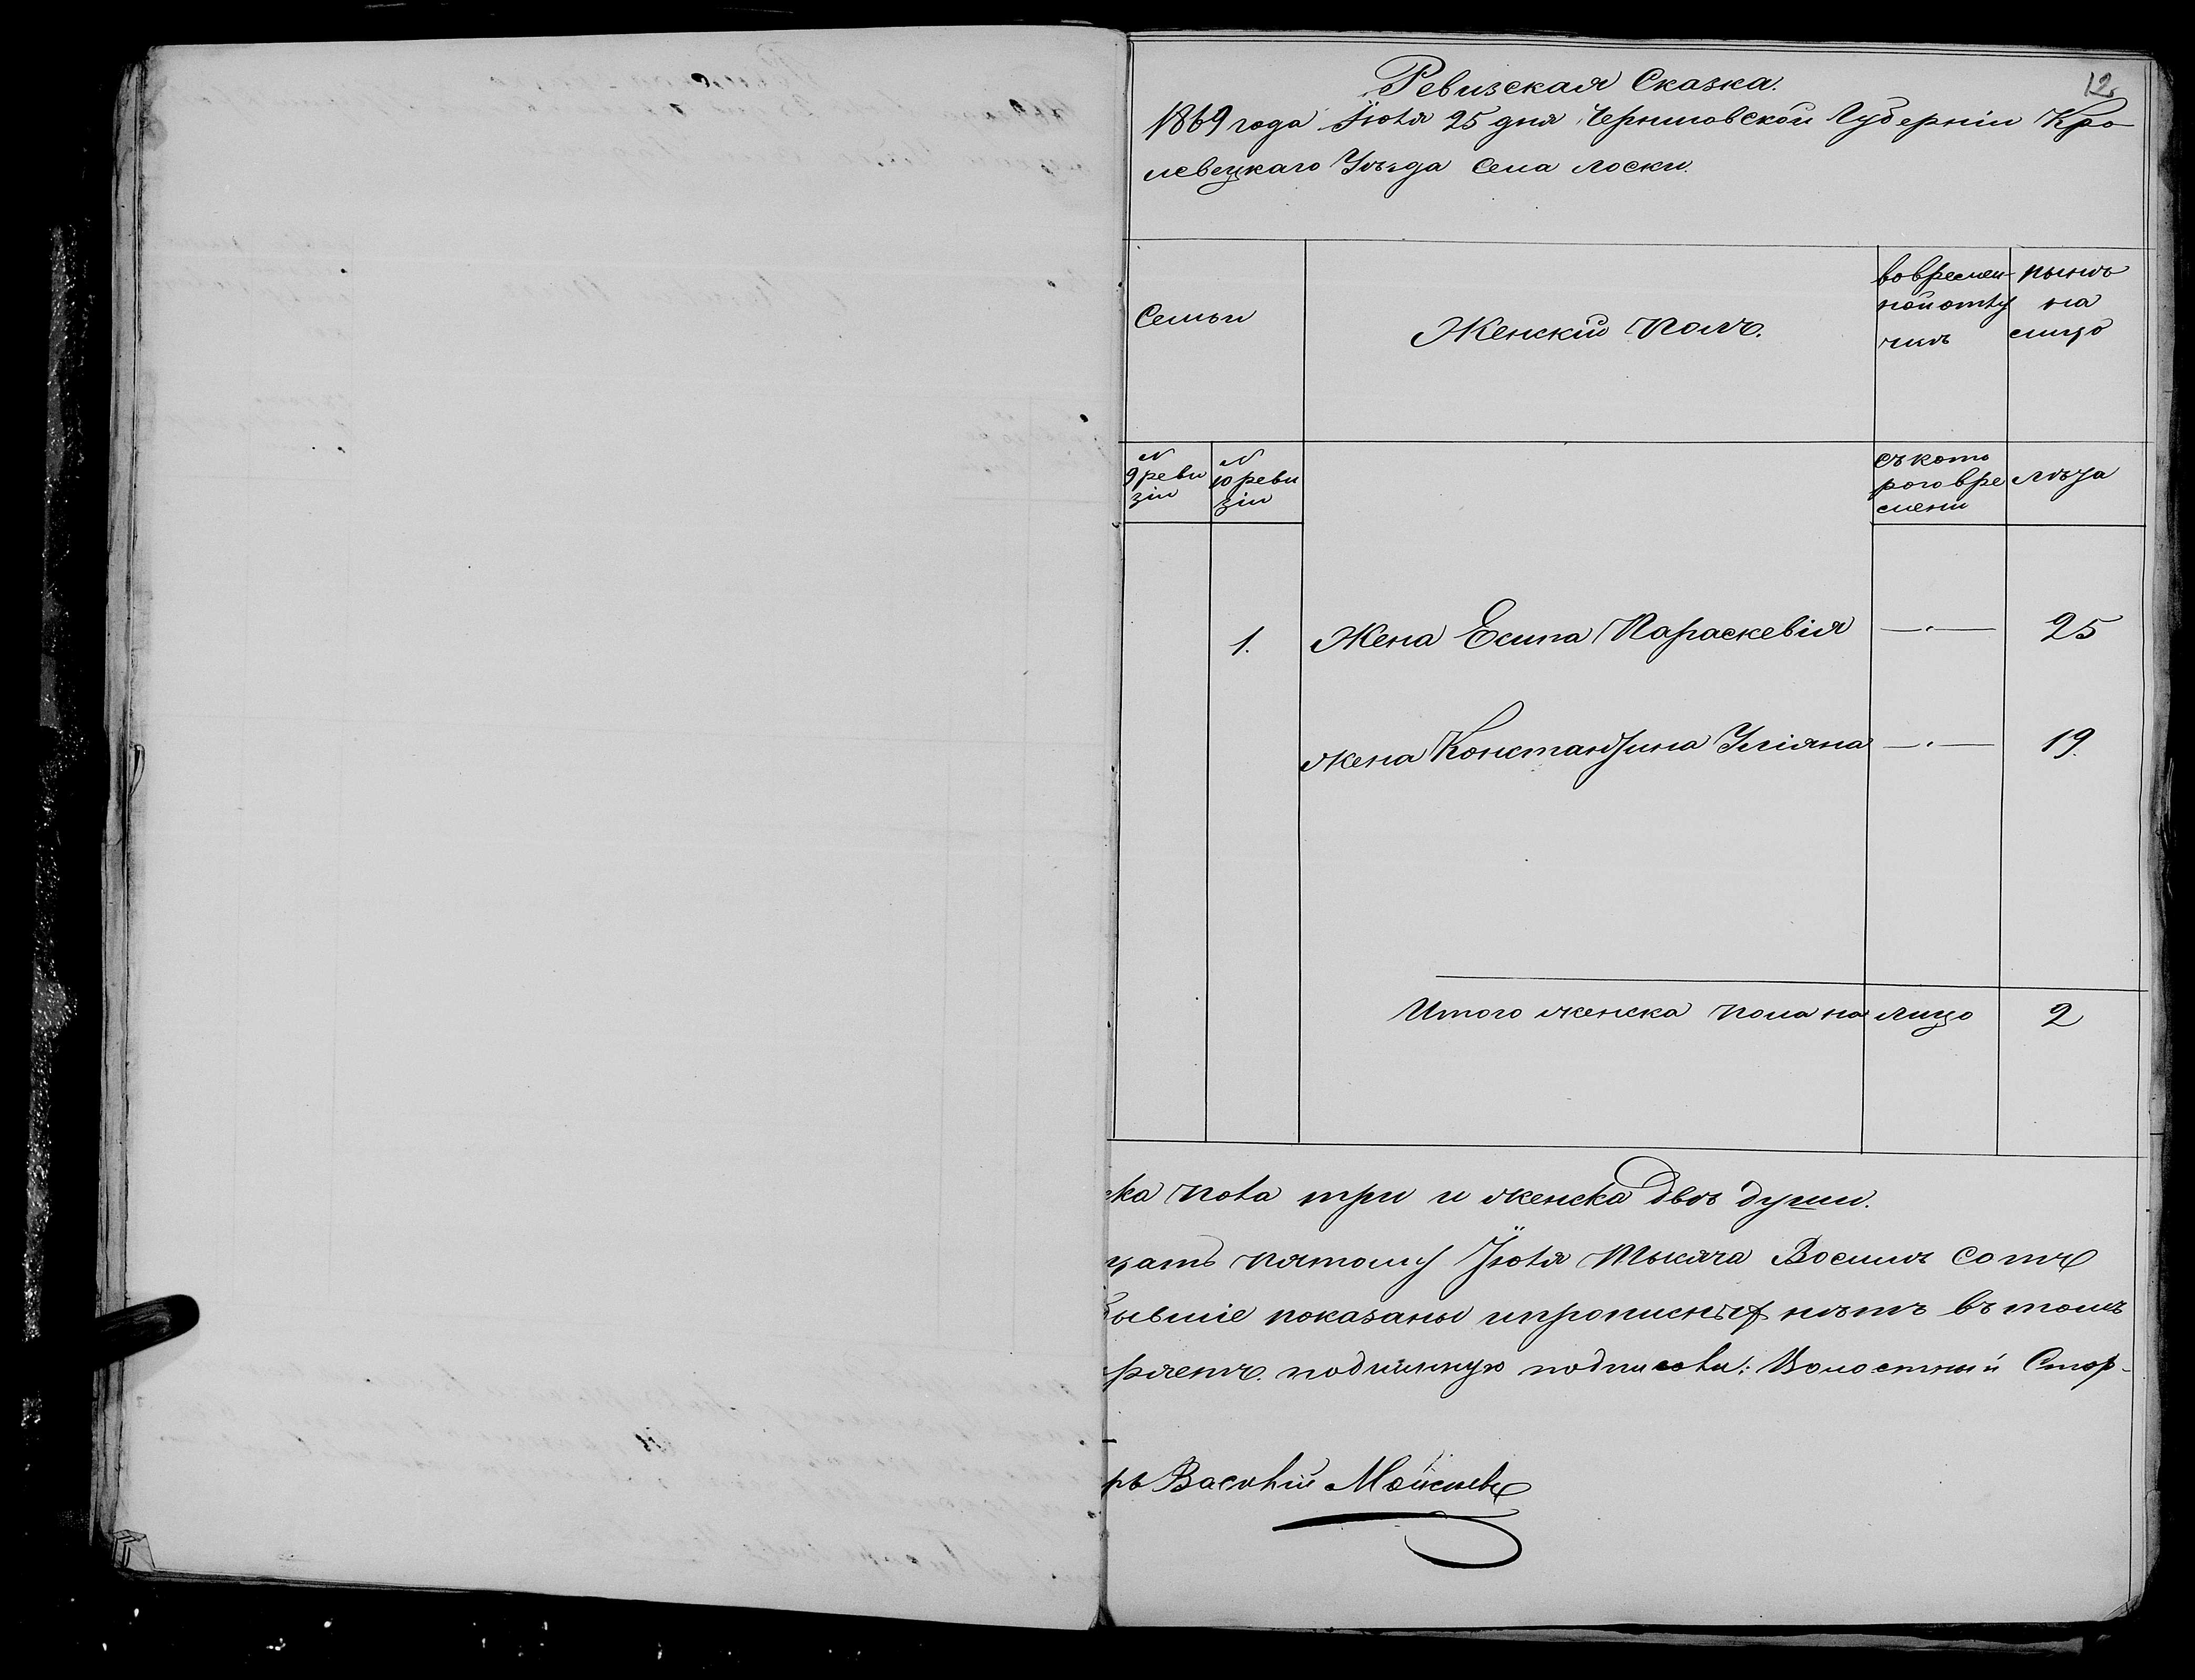 12
Ревизская Сказка.
1869 года Іюля 25 дня Черниговской Губерніи Кро-
левецкаго Уѣзда Села Лоски.
Семьи
Женскій Полъ.
во времен-
ной отлу
чкѣ
нынѣ
на
лицо
N
9 реви
зіи
N
10 реви
зіи
съ кото
раго вре
мени
лѣта
1. Жена Есипа Параскевія —„— 25
жена Константина Уліяна —„— 19.
Итого женска пола на лицо 2
ска пола три и женска двѣ души.
цать пятого Іюля Тысяча Восемь сотъ
бывшіе показаны и прописныхъ нѣтъ въ томъ
ряетъ. подлинную подписали: Волостный Стар-
рь Василій Мойсеевъ